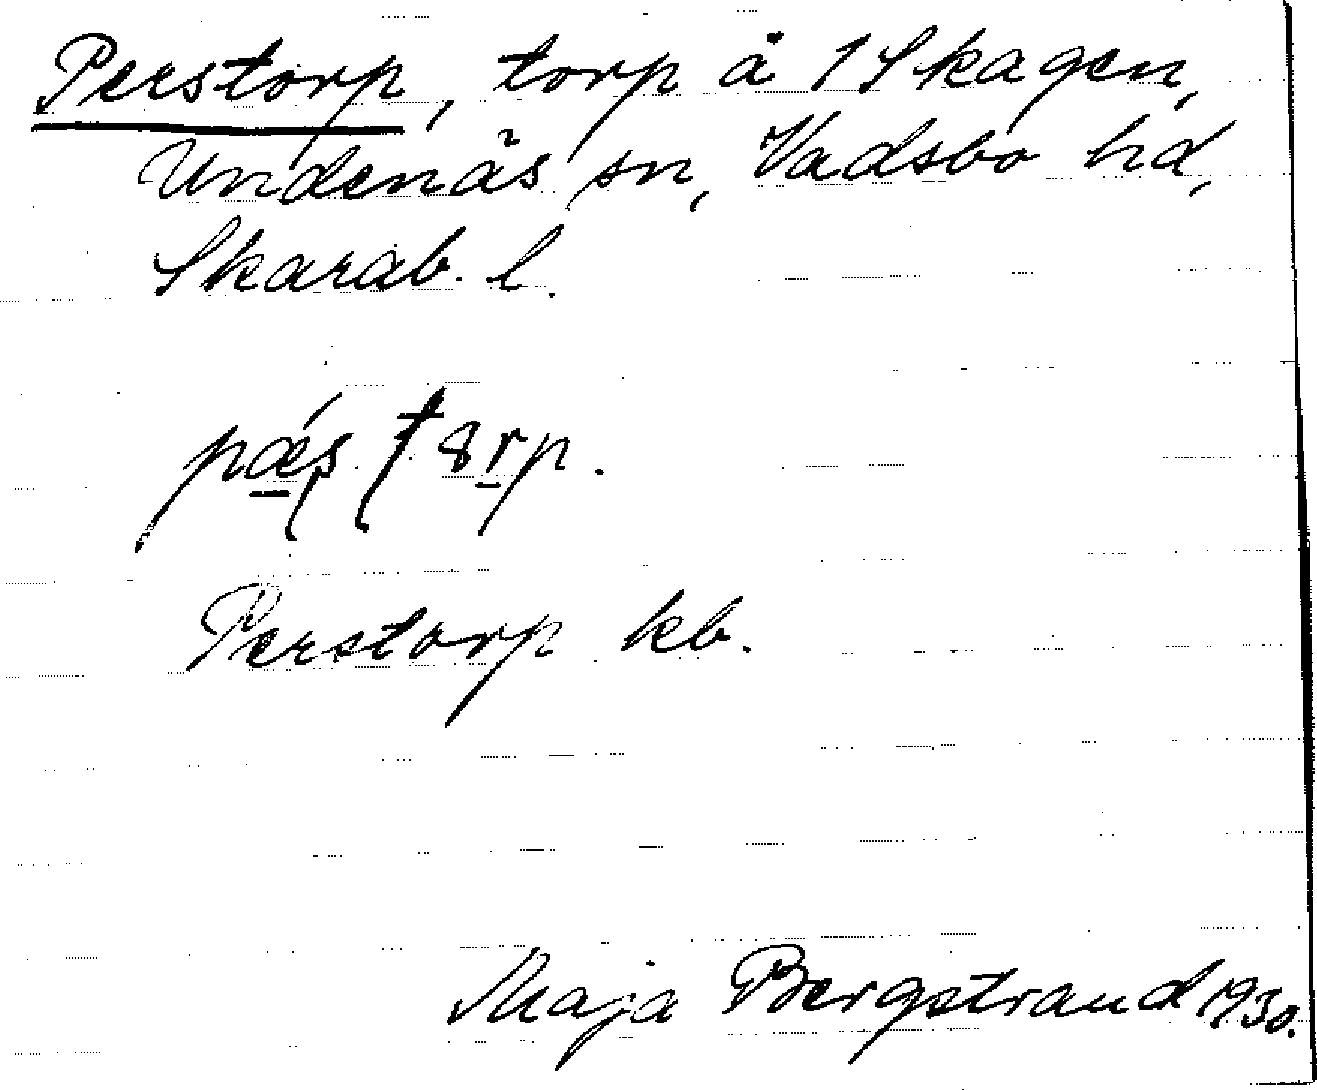 Perstorp, torp å 1 Skagen,
Undenäs sn, Vadsbo hd,
Skarab. l.
Perstorp kb.
Maja Bergstrand 1930.